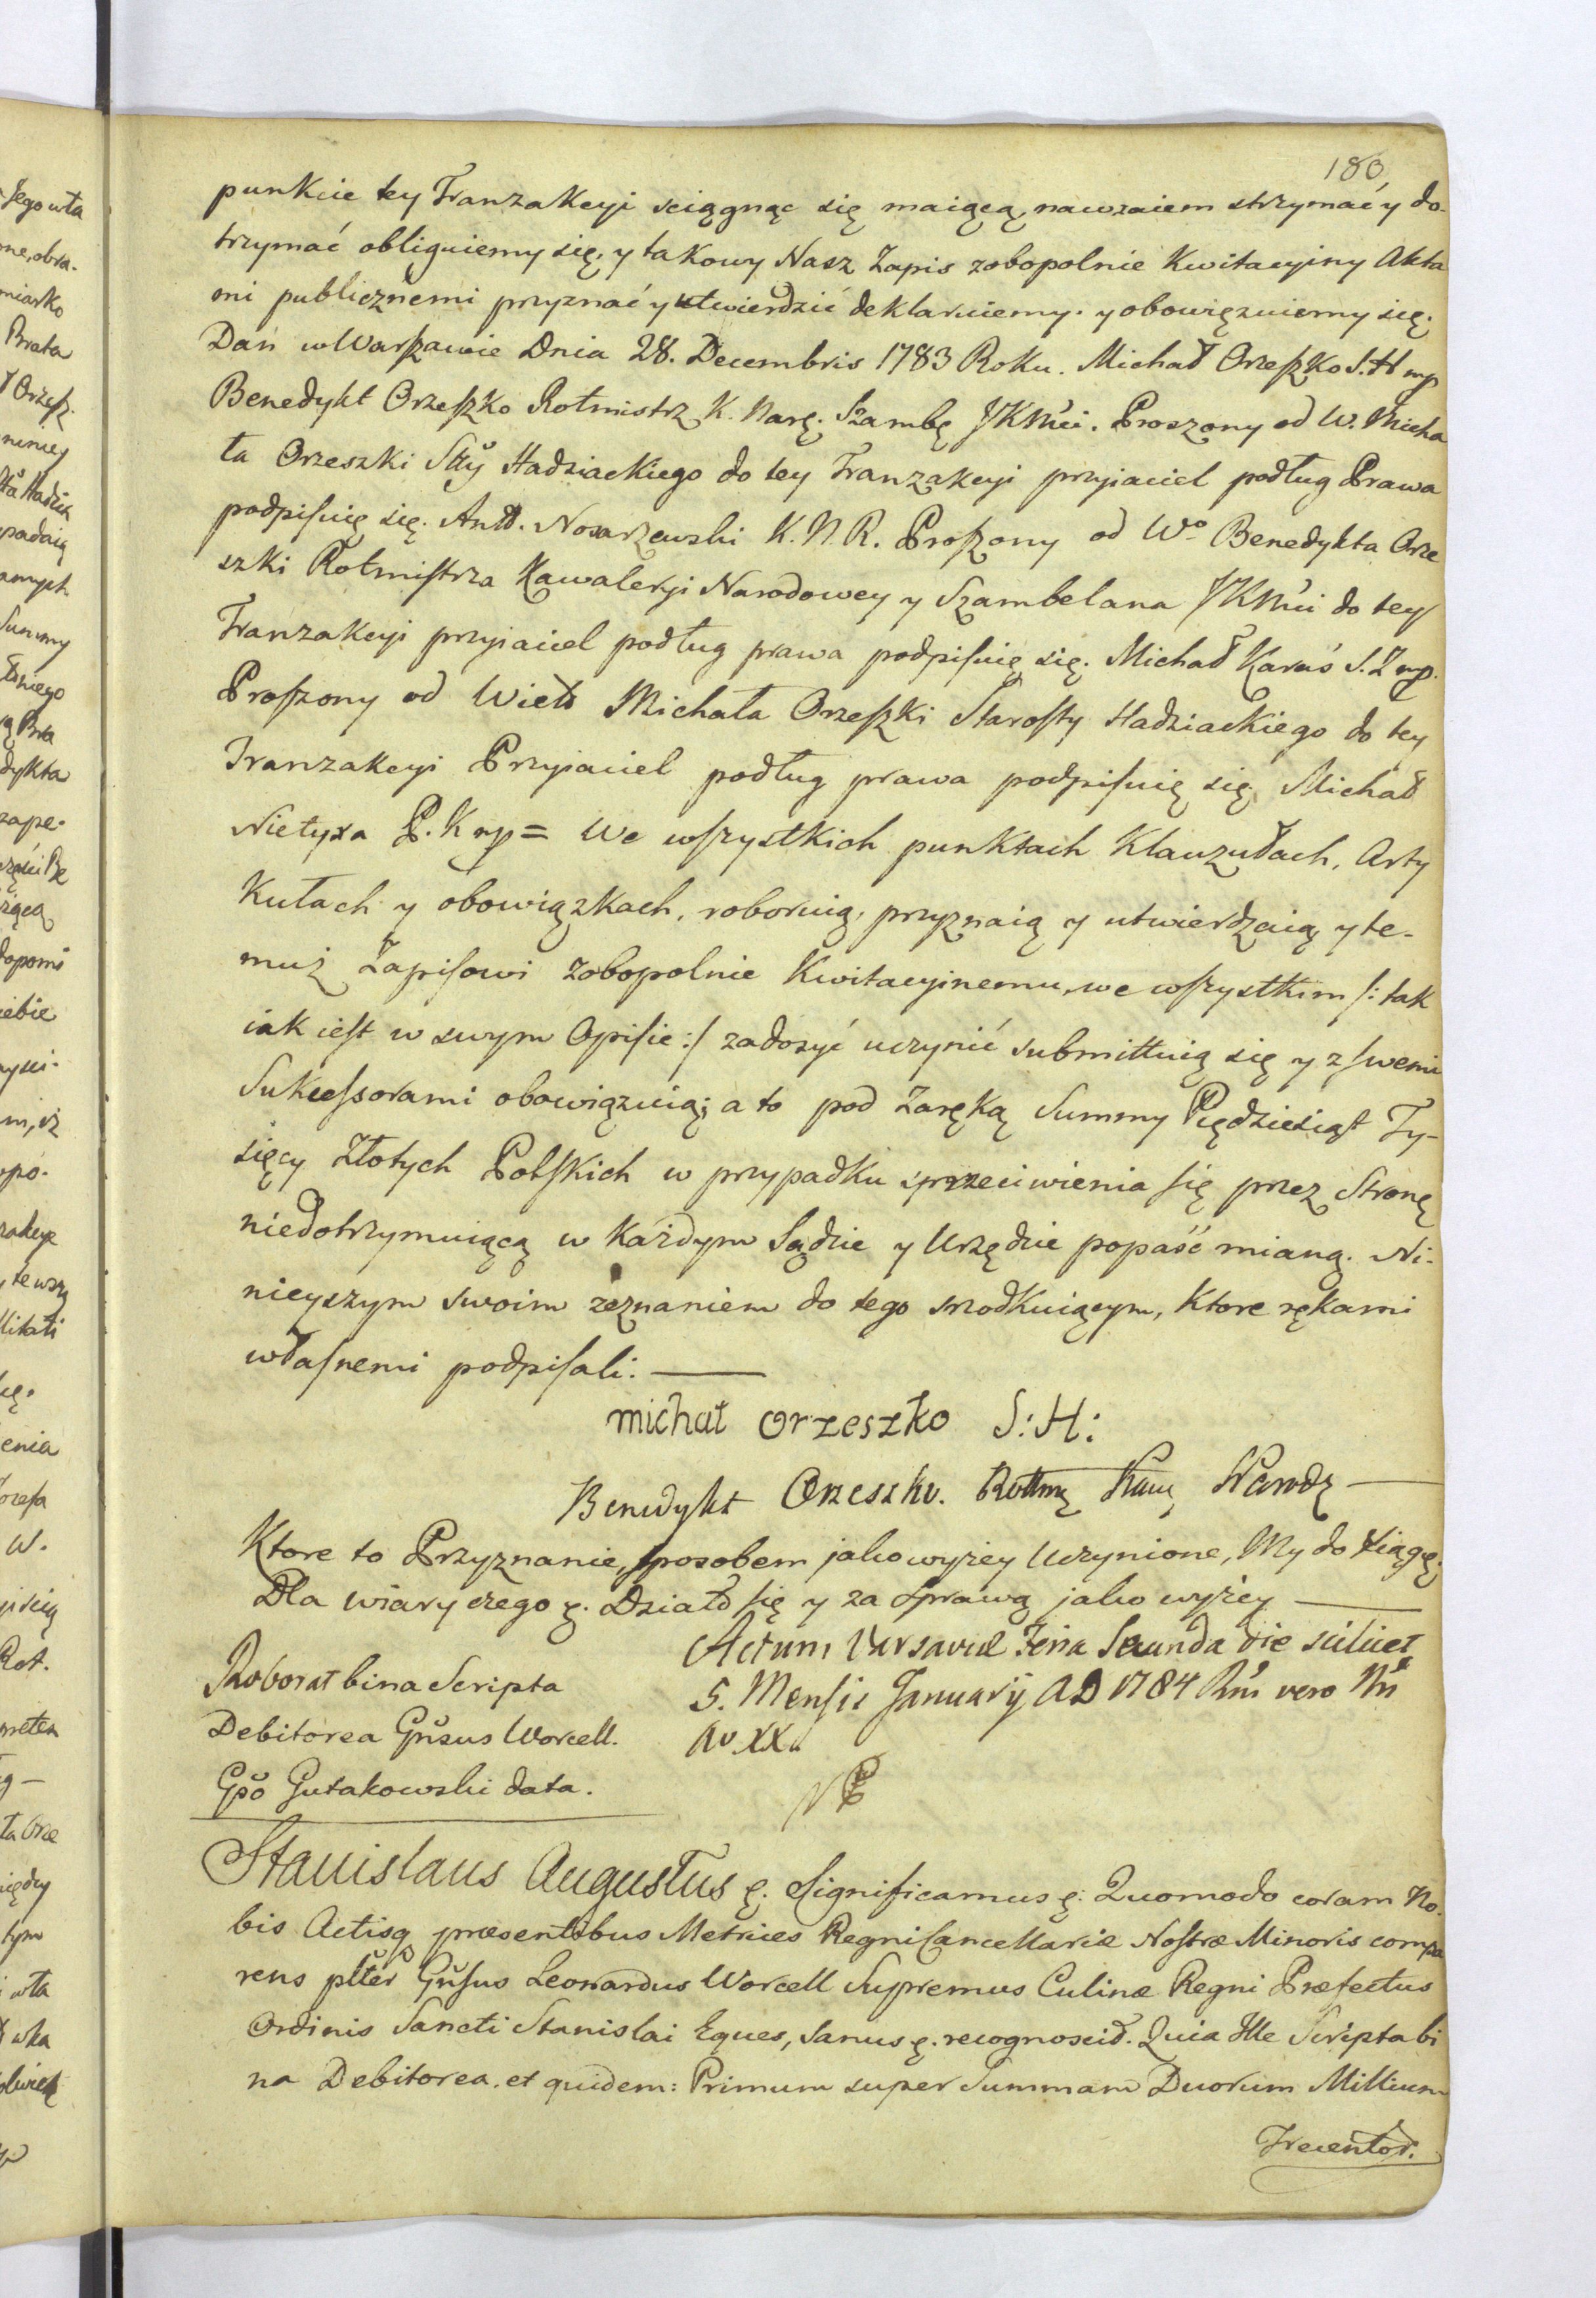 180
punkcie tey Tranzakcyi sciągnąc się maiącą nawzaiem strzymać y do-
trzymać obliguiemy się, y takowy Nasz Zapis zobopolnie Kwitacyiny Akta
mi publicznemi przyznać y utwierdzić deklaruiemy. y obowięzuiemy się.
Dań w Warszawie Dnia 28. Decembris 1783 Roku. Michał Orzeszko S. H mp
Benedykt Orzeszko Rotmistrz K. Narę. Szambę JKMci. Proszony od W. Micha
ła Orzeszki Stty Hadziackiego do tey Tranzakcyi przyiaciel podług Prawa
podpisuię się. Antt. Nosarzewski K. N. R. Proszony od Wo Benedykta Orze
szki Rotmistrza Kawaleryi Narodowey y Szambelana JKMci do tey
Tranzakcyi przyiaciel podług prawa podpisuię się. Michał Karaś S. Z mp.
Proszony od Wielo Michała Orzeszki Starosty Hadziackiego do tey
Tranzakcyi Przyiaciel podług prawa podpisuię się Michał
Nietyxa P. K mp = We wszystkich punktach Klauzułach, Arty
Kułach y obowiązkach, roboruią, przyznaią y utwierdzaią y te-
muż Zapisowi zobopolnie Kwitacyinemu, we wszystkim /: tak
iak iest w swym Opisie :/ zadosyć uczynić submittuią się y z swemi
Sukcessorami obowiązuią; a to pod Zaręką Summy Piędziesiąt Ty-
sięcy Złotych Polskich w przypadku sprzeciwienia się przez Stronę
niedotrzymuiącą w Każdym Sądzie y Urzędzie popaść mianą. Ni-
nieyszym swoim zeznaniem do tego srzodkuiącym, Ktore rękami
własnemi podpisali: —
michał Orzeszko S: H:
Benedykt Orzeszko. Rottmę Kawę Narodę —
Ktore to Przyznanie, sposobem jako wyżey Uczynione, My do Xiągę.
Dla wiary czego ę. Działo się y za sprawą jako wyżey —
Actum Varsaviæ Feria Secunda die scilicet
5. Mensis Januarij AD 1784 Rni vero Nri
Ao XX.
Roborat bina Scripta
Debitorea Gnsus Worcell.
Gso Gutakowski data.
Stanislaus Augustus ę. Significamus ę. Quomodo coram No-
bis Actisq præsentibus Metrices Regni Cancellariæ Nostræ Minoris compa
rens plter Gnsus Leonardus Worcell Supremus Culinæ Regni Præfectus
Ordinis Sancti Stanislai Eques, Sanus ę. recognovit. Quia Ille Scripta bi
na Debitorea. et quidem: Primum super Summam Duorum Millium
Trecentor.